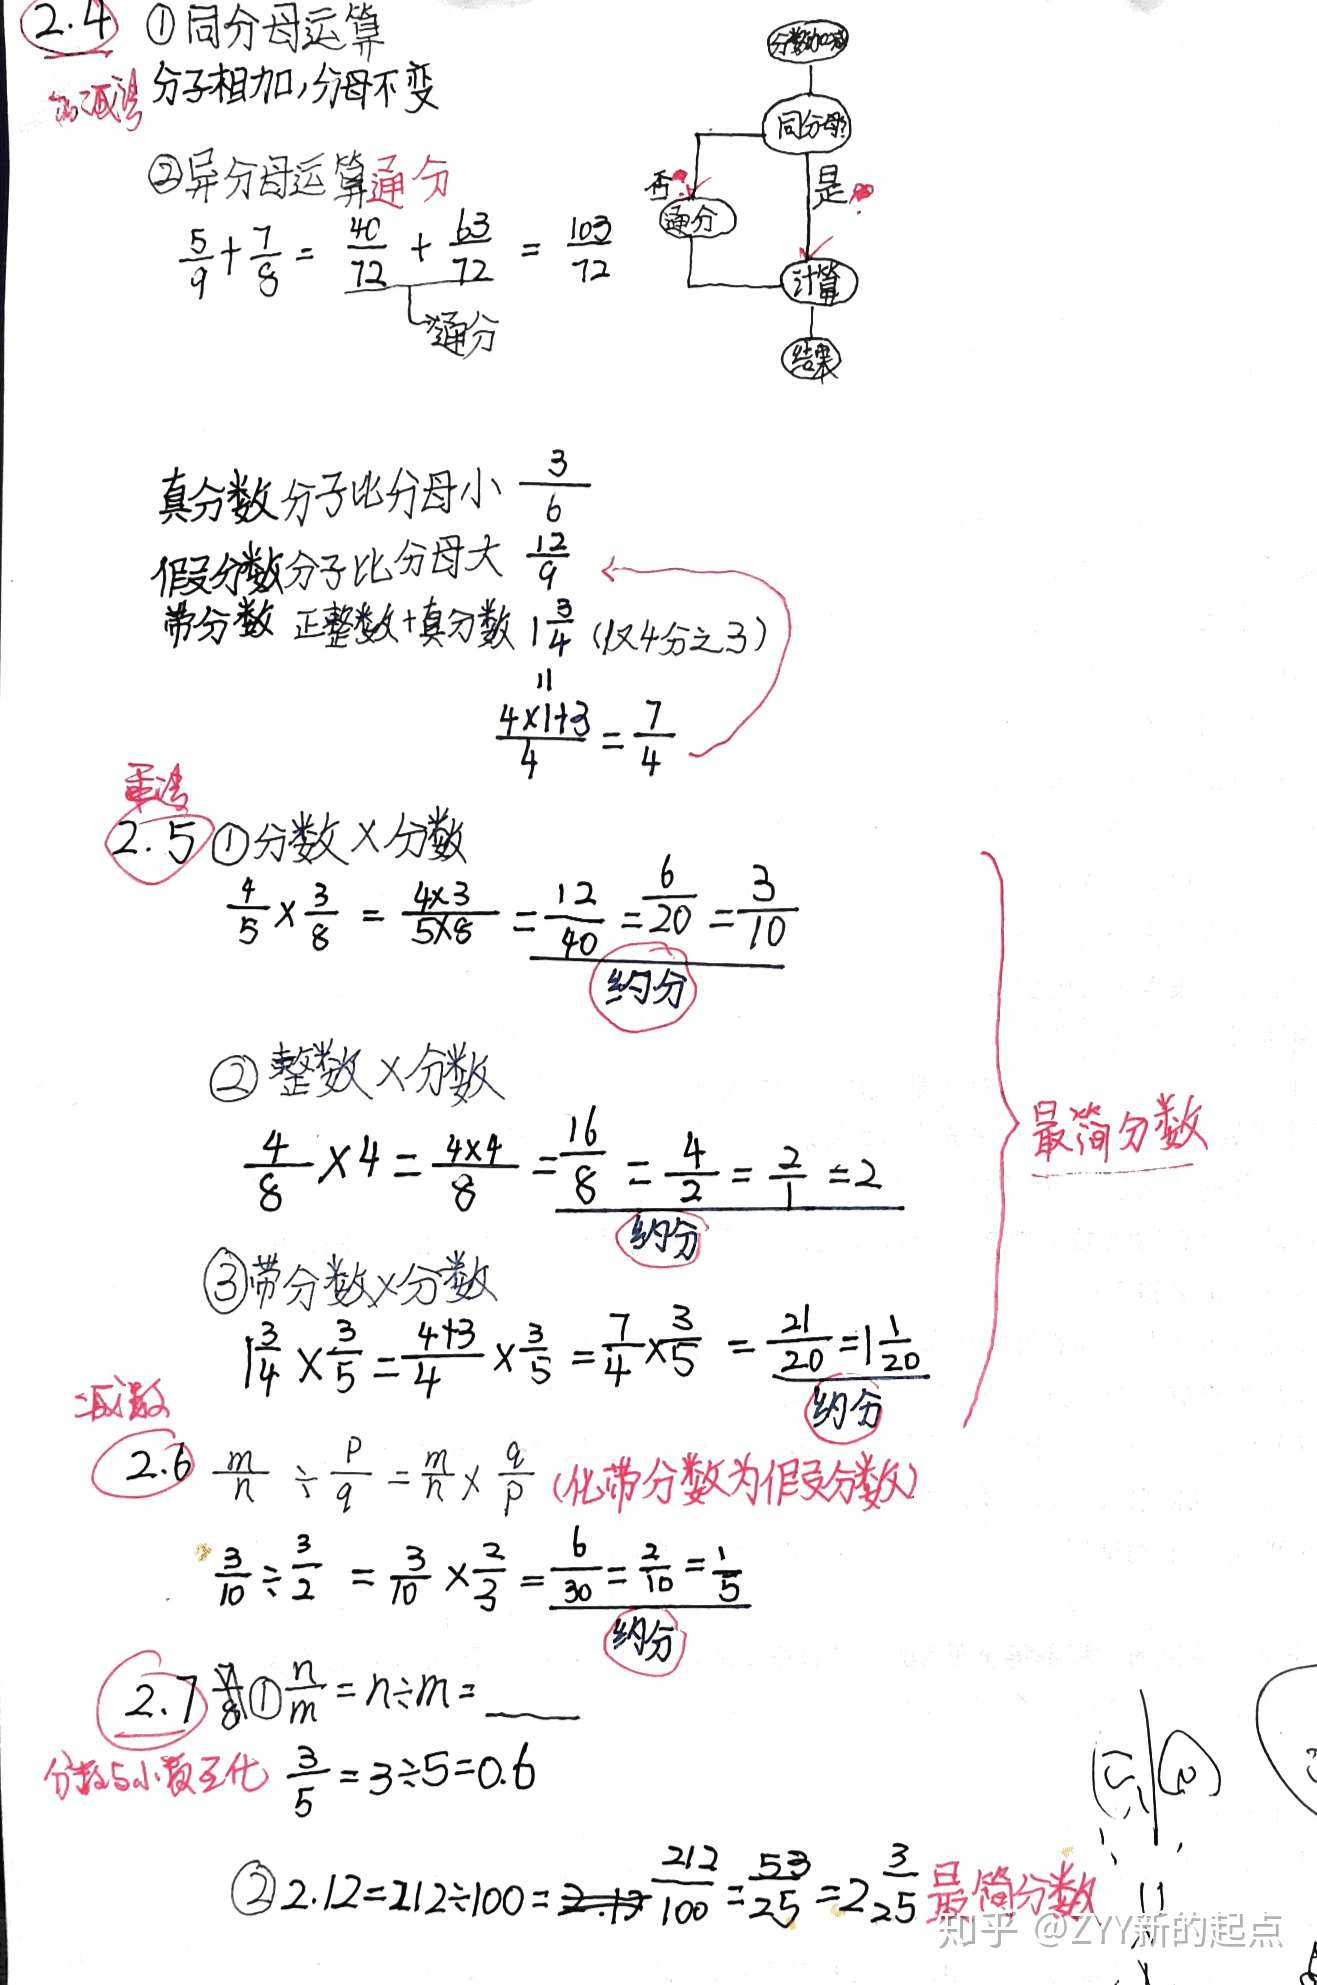 2.4 ①同分母运算
加减法 分子相加,分母不变
②异分母运算 通分
5/9 + 7/8 = 40/72 + 63/72 = 103/72
通分
分数加减
同分母?
否 是
通分
计算
结果
真分数 分子比分母小 3/6
假分数 分子比分母大 12/9
带分数 正整数+真分数 1 3/4 (仅4分之3)
=
(4×1+3)/4 = 7/4
乘法
2.5 ①分数×分数
4/5 × 3/8 = (4×3)/(5×8) = 12/40 = 6/20 = 3/10
约分
②整数×分数
4/8 ×4 = (4×4)/8 = 16/8 = 4/2 = 2/1 = 2
约分
最简分数
③带分数×分数
1 3/4 × 3/5 = (4+3)/4 × 3/5 = 7/4 × 3/5 = 21/20 = 1 1/20
约分
2.6 m/n ÷ p/q = m/n × q/p (化带分数为假分数)
3/10 ÷ 3/2 = 3/10 × 2/3 = 6/30 = 2/10 = 1/5
约分
2.7 ① n/m = n÷m = ___
分数与小数互化 3/5 = 3÷5 = 0.6
②2.12=212÷100= 212/100 = 53/25 = 2 3/25 最简分数
知乎 @ZYY新的起点